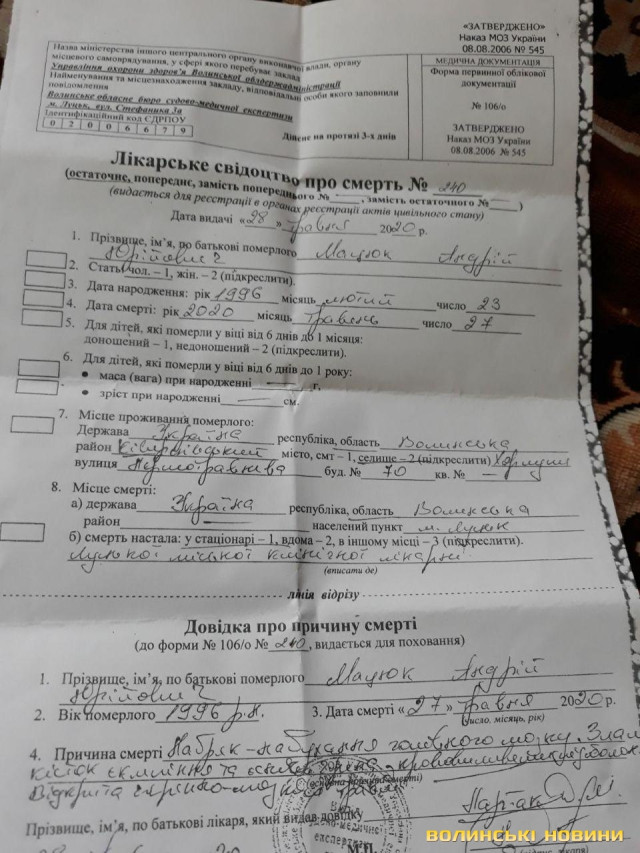 «ЗАТВЕРДЖЕНО»
Наказ МОЗ України
08.08.2006 № 545
Назва міністерства іншого центрального органу виконавчої влади, органу
місцевого самоврядування, у сфері якого перебуває заклад
Управління охорони здоров'я Волинської облдержадміністрації
Найменування та місцезнаходження закладу, відповідальні особи якого заповнили
повідомлення
Волинське обласне бюро судово-медичної експертизи
м. Луцьк, вул. Стефаника 3а
Ідентифікаційний код ЄДРПОУ
0 2 0 0 6 6 7 9
Дійсне на протязі 3-х днів
МЕДИЧНА ДОКУМЕНТАЦІЯ
Форма первинної облікової
документації
№ 106/о
ЗАТВЕРДЖЕНО
Наказ МОЗ України
08.08.2006 № 545
Лікарське свідоцтво про смерть № 240
(остаточне, попереднє, замість попереднього № , замість остаточного № )
(видається для реєстрації в органах реєстрації актів цивільного стану)
Дата видачі «28» травня 2020 р.
1. Прізвище, ім'я, по батькові померлого Мацюк Андрій
Юрійович
2. Стать: чол. – 1, жін. – 2 (підкреслити).
3. Дата народження: рік 1996 місяць лютий число 23
4. Дата смерті: рік 2020 місяць травень число 27
5. Для дітей, які померли у віці від 6 днів до 1 місяця:
доношений – 1, недоношений – 2 (підкреслити).
6. Для дітей, які померли у віці від 6 днів до 1 року:
• маса (вага) при народженні — г.
• зріст при народженні — см.
7. Місце проживання померлого:
Держава Україна республіка, область Волинська
район Ківерцівський місто, смт – 1, селище – 2 (підкреслити)
вулиця буд. № 70 кв. № —
8. Місце смерті:
а) держава Україна республіка, область Волинська
район — населений пункт м. Луцьк
б) смерть настала: у стаціонарі – 1, вдома – 2, в іншому місці – 3 (підкреслити).
міської клінічної лікарні
(вписати де)
лінія відрізу
Довідка про причину смерті
(до форми № 106/о № 240, видається для поховання)
1. Прізвище, ім'я, по батькові померлого Мацюк Андрій
Юрійович
2. Вік померлого 1996 р.н. 3. Дата смерті «27» травня 2020 р.
(число, місяць, рік)
4. Причина смерті Набряк-набухання головного мозку. Злам
кісток склепіння та
Відкрита черепно-мозкова травма
Прізвище, ім'я, по батькові лікаря, який видав довідку
М.П.
ВОЛИНСЬКІ НОВИНИ